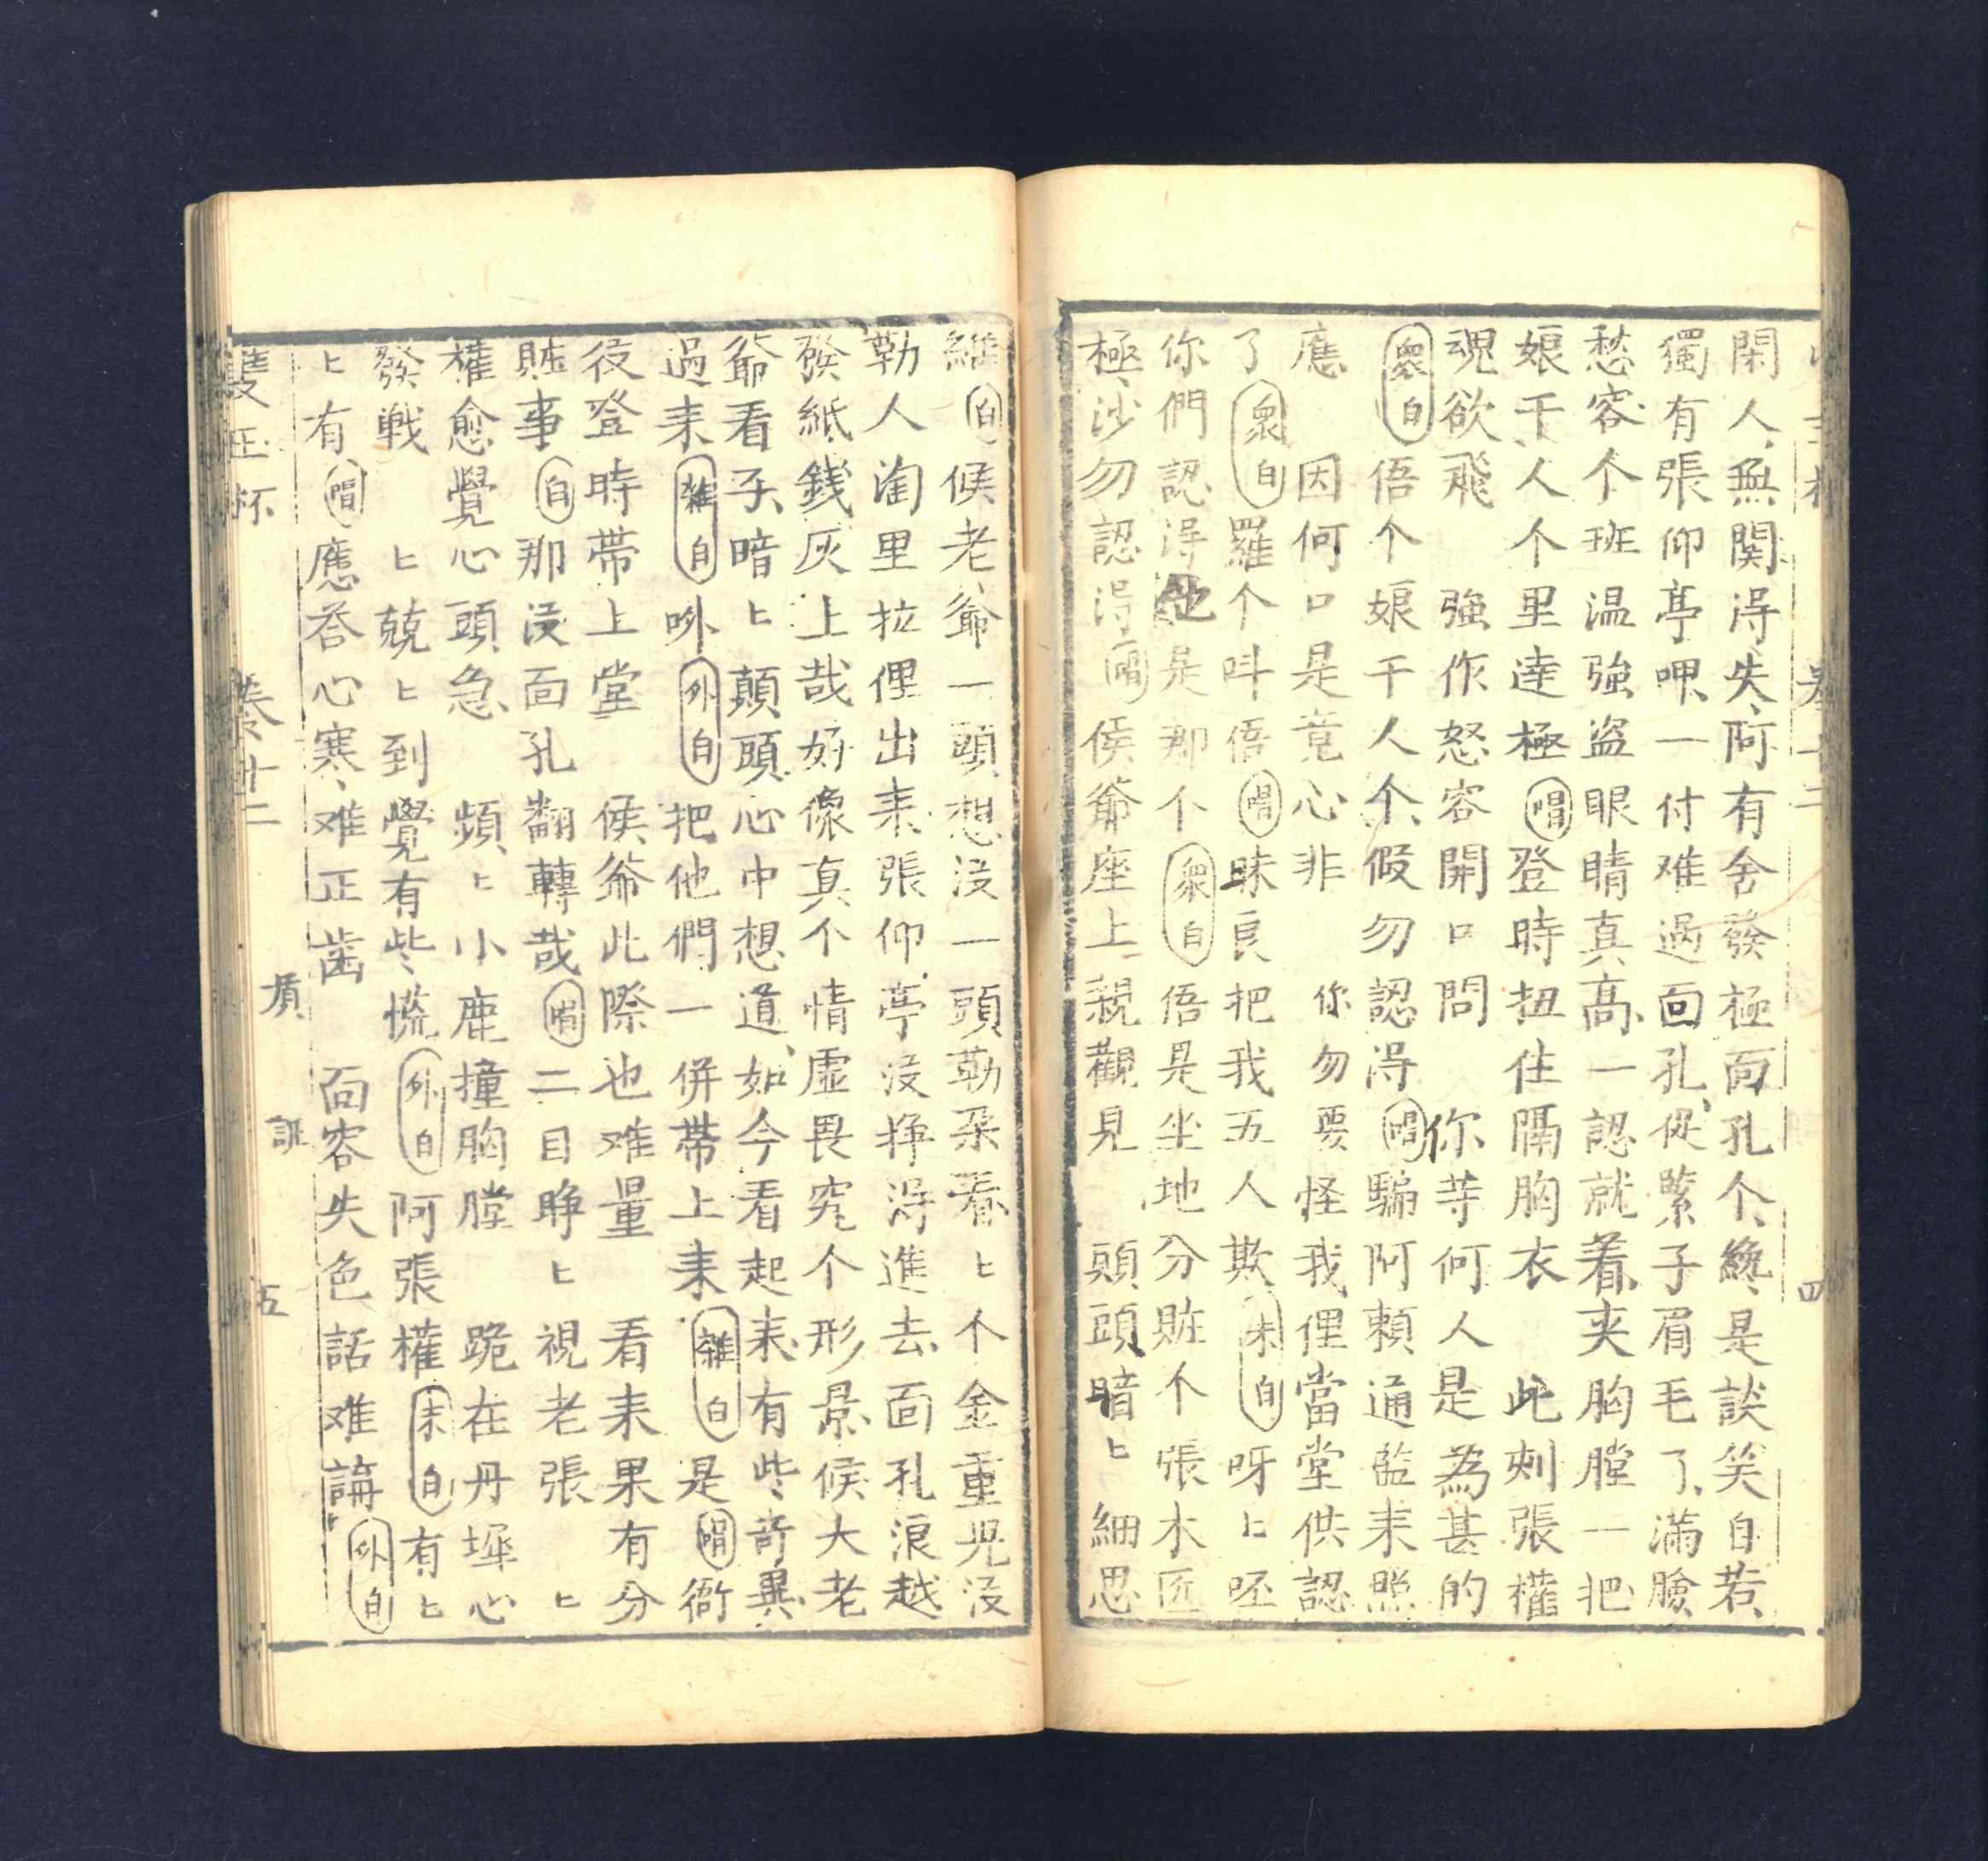 閑人、無関淂失、阿有舍發極面孔个、纔是談笑自若、
獨有張仰亭呷一付难過面孔、從緊子眉毛了、滿臉
愁容、个班温強盗眼睛真高、一認就着、夹胸膛一把
娘千人个里達極(唱)登時扭住隔胸衣　此刻張權
魂欲飛　強作怒容開口問　你等何人是為甚的
(衆白)俉个娘千人个、假勿認淂(唱)騙阿賴通監来照
應　因何口是竟心非　你勿要怪我俚當堂供認
了(衆白)羅个呌俉(唱)昧良把我五人欺(末白)呀ヒ呸
你們認淂他是那个(衆白)俉是坐地分賍个張木匠
極、沙勿認淂(唱)侯爺座上親觀見　頭頭暗ヒ細思
維(白)候老爺一頭想没一頭勒朶看ヒ个金重児没
勒人淘里拉俚出来、張仰亭没掙淂進去、面孔浪越
發紙錢灰上哉好像真个情虚畏究个形景、候大老
爺看子、暗ヒ顛頭、心中想道、如今看起来、有些竒異
過来(雜白)㕤(外白)把他們一併帶上来(雜白)是(唱)衙
役登時帶上堂　侯爺此際也难量　看来果有分
賍事(白)那没面孔翻轉哉(唱)二目睁ヒ視老張　ヒ
權愈覺心頭急　頻ヒ小鹿撞胸膛　跪在丹墀心
發戦　ヒ兢ヒ到覺有些慌(外白)阿張權(末白)有ヒ
ヒ有(唱)應荅心寒、难正齒　面容失色話难講(外白)
雙玉杯　卷廿二　質証　五